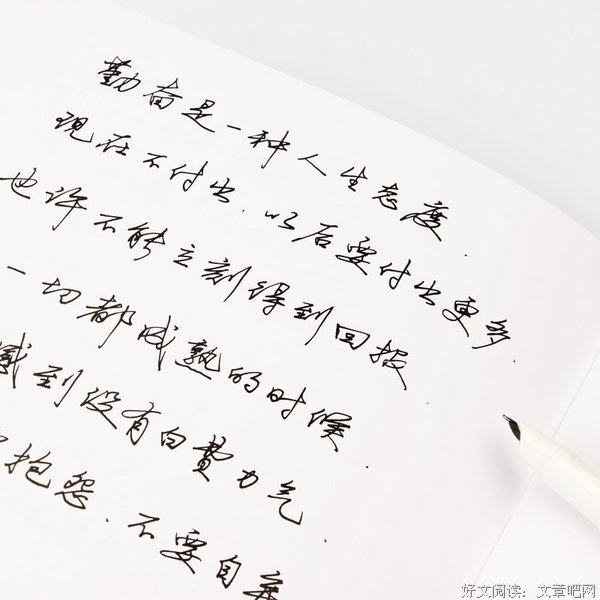 勤奋是一种人生态度.
现在不付出.以后要付出更多.
也许不能立刻得到回报
一切都成熟的时候.
感到没有白费力气.
抱怨.不要自
好文阅读：文章吧网